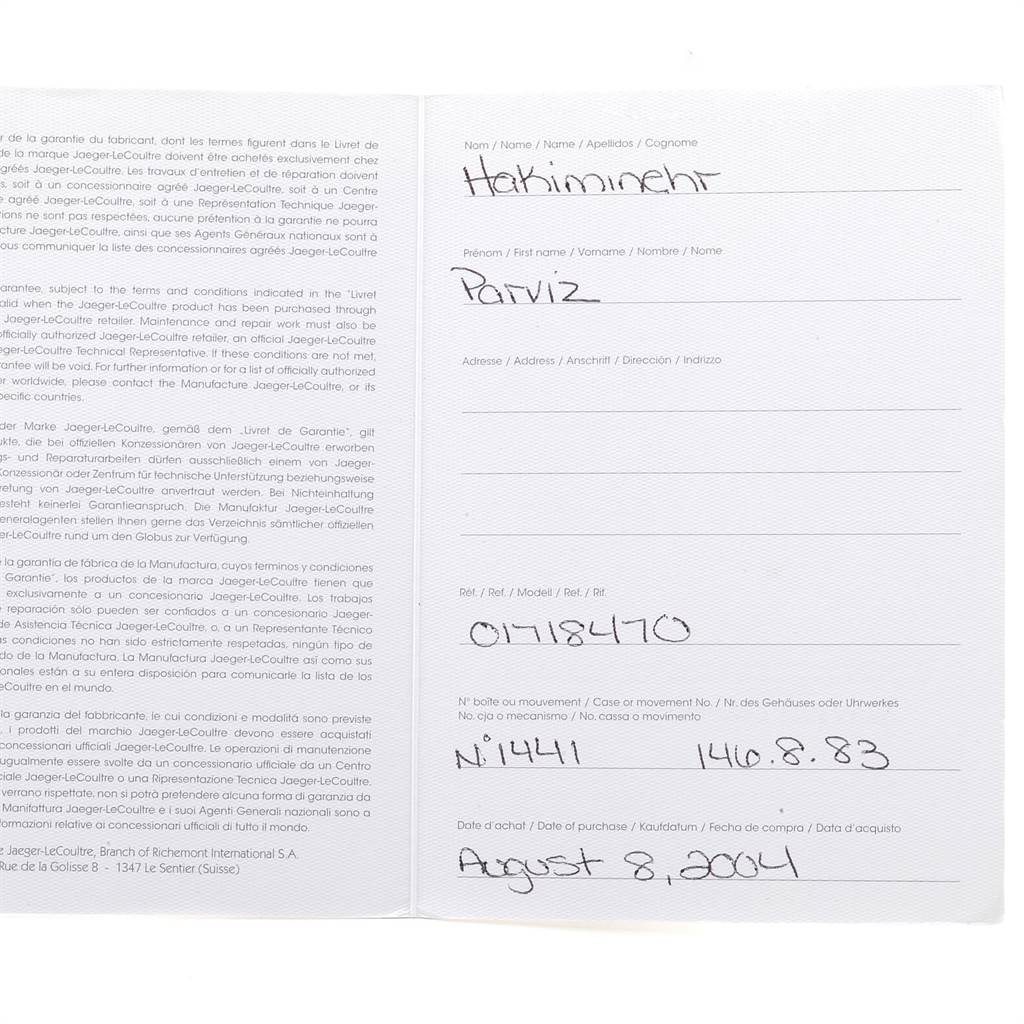 r de la garantie du fabricant, dont les termes figurent dans le Livret de
de la marque Jaeger-LeCoultre doivent être achetés exclusivement chez
gréés Jaeger-LeCoultre. Les travaux d'entretien et de réparation doivent
s, soit à un concessionnaire agréé Jaeger-LeCoultre, soit à un Centre
e agréé Jaeger-LeCoultre, soit à une Représentation Technique Jaeger-
tions ne sont pas respectées, aucune prétention à la garantie ne pourra
cture Jaeger-LeCoultre, ainsi que ses Agents Généraux nationaux sont à
ous communiquer la liste des concessionnaires agréés Jaeger-LeCoultre
arantee, subject to the terms and conditions indicated in the "Livret
alid when the Jaeger-LeCoultre product has been purchased through
Jaeger-LeCoultre retailer. Maintenance and repair work must also be
officially authorized Jaeger-LeCoultre retailer, an official Jaeger-LeCoultre
eger-LeCoultre Technical Representative. If these conditions are not met,
rantee will be void. For further information or for a list of officially authorized
er worldwide, please contact the Manufacture Jaeger-LeCoultre, or its
pecific countries.
der Marke Jaeger-LeCoultre, gemäß dem „Livret de Garantie", gilt
ukte, die bei offiziellen Konzessionären von Jaeger-LeCoultre erworben
gs- und Reparaturarbeiten dürfen ausschließlich einem von Jaeger-
Konzessionär oder Zentrum für technische Unterstützung beziehungsweise
retung von Jaeger-LeCoultre anvertraut werden. Bei Nichteinhaltung
esteht keinerlei Garantieanspruch. Die Manufaktur Jaeger-LeCoultre
eneralagenten stellen Ihnen gerne das Verzeichnis sämtlicher offiziellen
er-LeCoultre rund um den Globus zur Verfügung.
la garantía de fábrica de la Manufactura, cuyos terminos y condiciones
Garantie", los productos de la marca Jaeger-LeCoultre tienen que
exclusivamente a un concesionario Jaeger-LeCoultre. Los trabajos
reparación sólo pueden ser confiados a un concesionario Jaeger-
de Asistencia Técnica Jaeger-LeCoultre, o, a un Representante Técnico
as condiciones no han sido estrictamente respetadas, ningún tipo de
do de la Manufactura. La Manufactura Jaeger-LeCoultre así como sus
onales están a su entera disposición para comunicarle la lista de los
eCoultre en el mundo.
la garanzia del fabbricante, le cui condizioni e modalità sono previste
, i prodotti del marchio Jaeger-LeCoultre devono essere acquistati
concessionari ufficiali Jaeger-LeCoultre. Le operazioni di manutenzione
ugualmente essere svolte da un concessionario ufficiale da un Centro
ciale Jaeger-LeCoultre o una Ripresentazione Tecnica Jaeger-LeCoultre.
verrano rispettate, non si potrà pretendere alcuna forma di garanzia da
Manifattura Jaeger-LeCoultre e i suoi Agenti Generali nazionali sono a
formazioni relative ai concessionari ufficiali di tutto il mondo.
e Jaeger-LeCoultre, Branch of Richemont International S.A.
Rue de la Golisse 8 - 1347 Le Sentier (Suisse)
Nom / Name / Name / Apellidos / Cognome
Hakiminehr
Prénom / First name / Vorname / Nombre / Nome
Parviz
Adresse / Address / Anschrift / Dirección / Indrizzo
Réf. / Ref. / Modell / Ref. / Rif.
01718470
N° boîte ou mouvement / Case or movement No. / Nr. des Gehäuses oder Uhrwerkes
No. cja o mecanismo / No. cassa o movimento
N°1441 146.8.83
Date d'achat / Date of purchase / Kaufdatum / Fecha de compra / Data d'acquisto
August 8, 2004